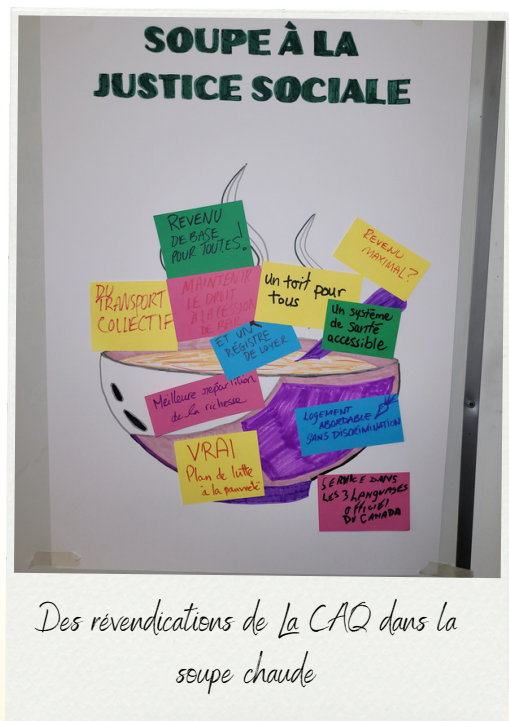 SOUPE À LA
JUSTICE SOCIALE
REVENU
DE BASE
POUR TOUTES!
REVENU
MAXIMAL?
DU
TRANSPORT
COLLECTIF
MAINTENIR
LE DROIT
À LA CESSION
DE BAIL
un toit pour
tous
un système
de santé
accessible
ET UN
REGISTRE
DE LOYER
Meilleure repartition
de la richesse
LOGEMENT
ABORDABLE
SANS DISCRIMINATION
VRAI
Plan de lutte
à la pauvreté
SERVICE DANS
LES 3 LANGUAGES
OFFICIEL
DU CANADA
Des révendications de La CAQ dans la
soupe chaude